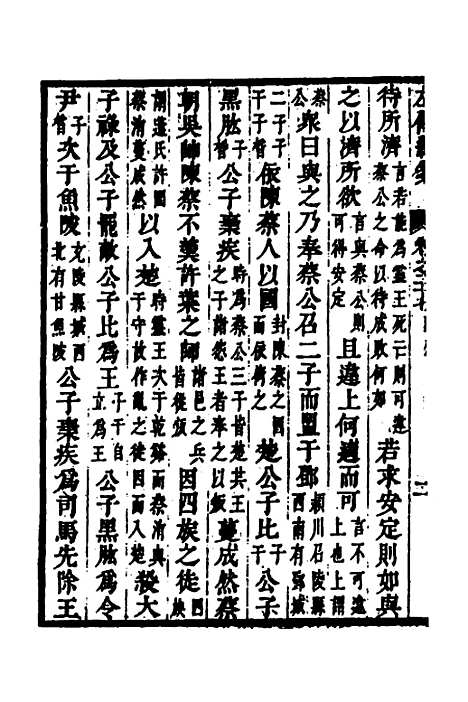 待所濟言若能為靈王死亡則可違蔡公之命以待成敗何如若求安定則如與
之以濟所欲言與蔡公則可得安定且違上何適而可言不可違上也上謂
蔡公衆曰與之乃奉蔡公召二子而盟于鄧潁川召陵縣西南有鄧城
二子子干子晳依陳蔡人以國封陳蔡之國而依倚之楚公子比子干公子
黑肱子晳公子棄疾時爲蔡公三子皆楚共王之子諸怨王者奉之以叛蔓成然蔡
朝吳帥陳蔡不羹許葉之師諸邑之兵皆從叛因四族之徒四族
謂薳氏許圍蔡洧蔓成然以入楚時靈王次于乾谿而蔡洧與于守故作亂之徒因而入楚殺大
子祿及公子罷敵公子比爲王子干自立爲王公子黑肱爲令
尹子晳次于魚陂竟陵縣城西北有甘魚陂公子棄疾爲司馬先除王